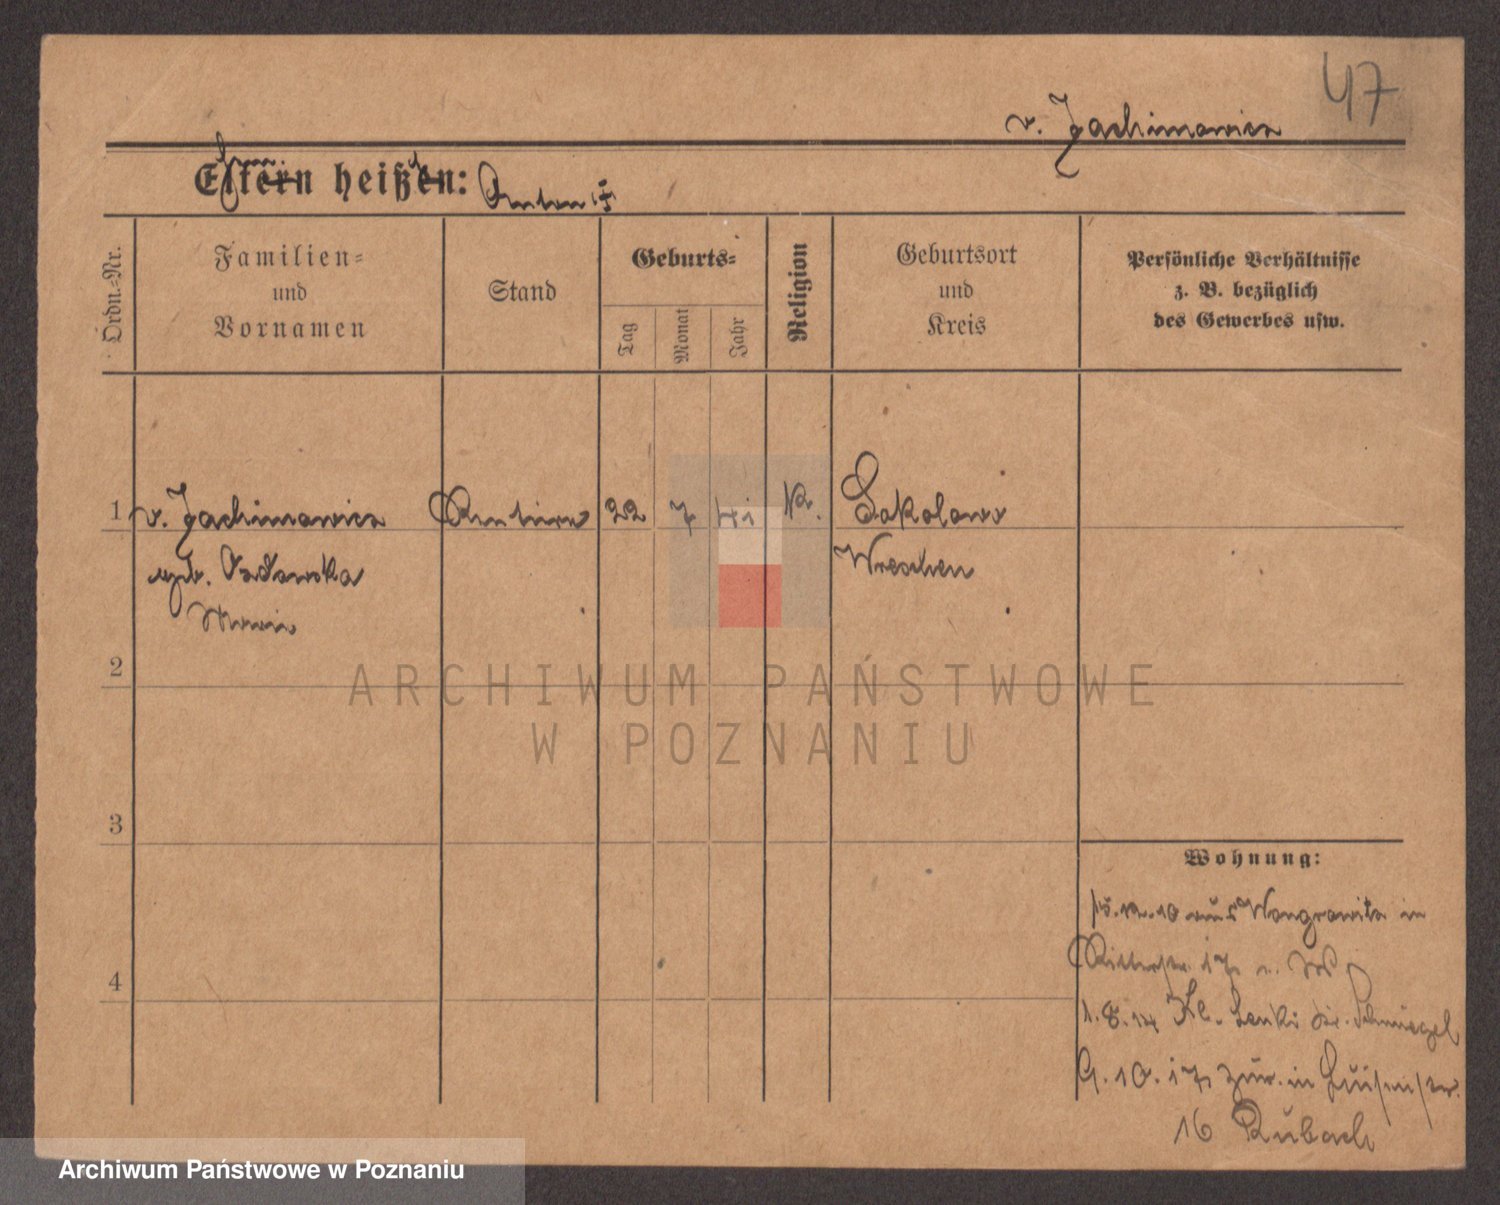 47
v. Jachimowicz
Eltern heißen: Anton †
Ordn.-Nr.
Familien-
und
Vornamen
Stand
Geburts-
Tag
Monat
Jahr
Religion
Geburtsort
und
Kreis
Persönliche Verhältnisse
z. B. bezüglich
des Gewerbes usw.
1 v. Jachimowicz Rentiere 22 7 41 K. Sokolowo
Wreschen
Maria
2
3
4
Wohnung:
15.12.10 aus Wongrowitz in
Ritterstr. 17
1.8.14 Kl. Lenki Kr. Schmiegel
9.10.17 zur. in Luisenstr.
16 Rubach
ARCHIWUM PAŃSTWOWE
W POZNANIU
Archiwum Państwowe w Poznaniu